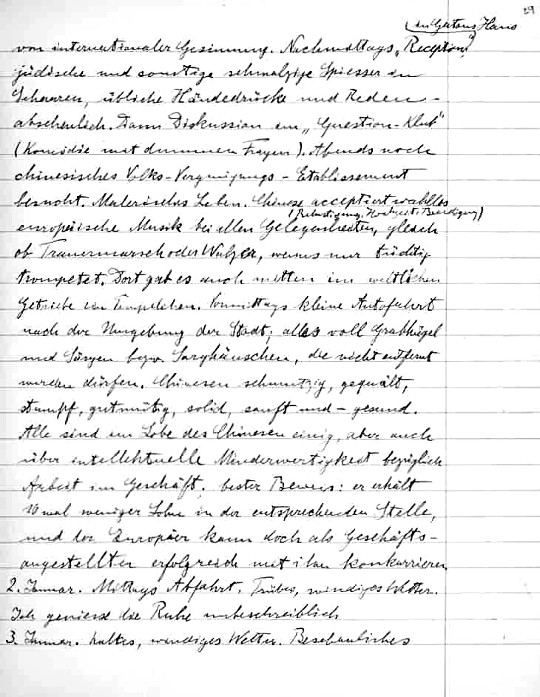 29
in Gartons Haus
von internationaler Gesinnung. Nachmittags „Reception"
jüdische und sonstige schmalzige Spiesser in
Scharen, übliche Händedrücke und Reden -
abscheulich. Dann Diskussion im „Question-Klub"
(Komödie mit dummen Fragen). Abends noch
chinesisches Volks-Vergnügungs-Etablissement
besucht. Malerisches Leben. Chinese acceptiert wahllos
(Belustigung, Hochzeit, Beerdigung)
europäische Musik bei allen Gelegenheiten, gleich
ob Trauermarsch oder Walzer, wenns nur tüchtig
trompetet. Dort gab es auch mitten im weltlichen
Getriebe ein Tempelchen. Vormittags kleine Autofahrt
nach der Umgebung der Stadt; alles voll Grabhügel
und Särgen bezw. Sarghäuschen, die nicht entfernt
werden dürfen. Chinesen schmutzig, gequält,
stumpf, gutmütig, solid, sanft und - gesund.
Alle sind im Lobe des Chinesen einig, aber auch
über intellektuelle Minderwertigkeit bezüglich
Arbeit im Geschäft; bester Beweis: er erhält
10 mal weniger Lohn in der entsprechenden Stelle,
und der Europäer kann doch als Geschäfts-
angestellter erfolgreich mit ihm konkurrieren
2. Januar. Mittags Abfahrt. Trübes, windiges Wetter.
Ich geniesse die Ruhe unbeschreiblich
3. Januar. kaltes, windiges Wetter. Beschauliches